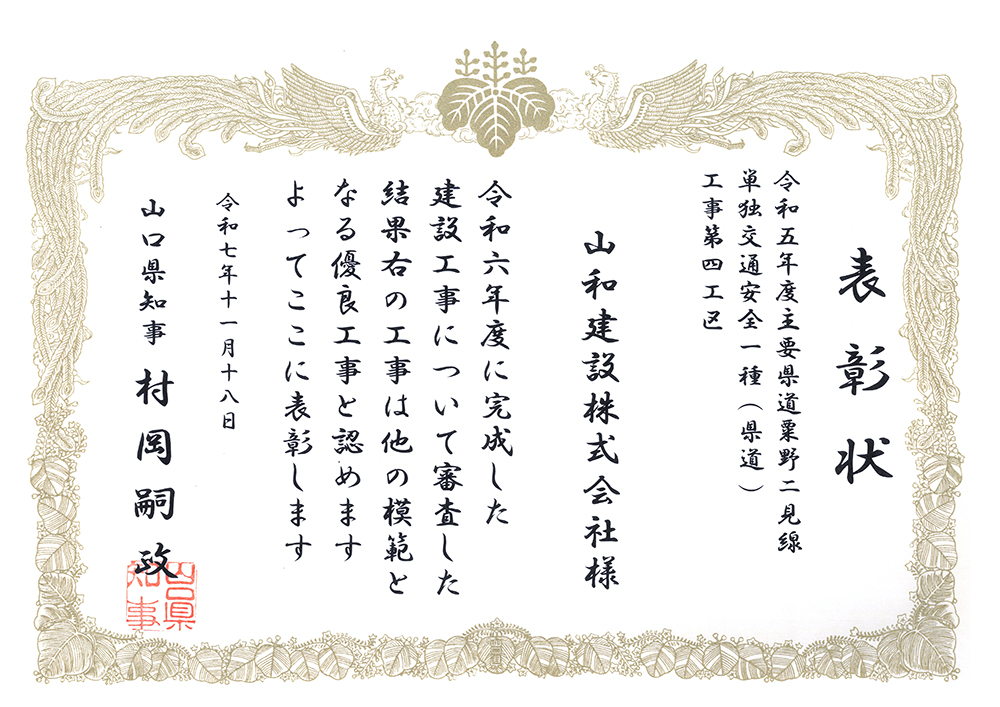 表彰状
令和五年度主要県道粟野二見線
単独交通安全一種（県道）
工事第四工区
山和建設株式会社様
令和六年度に完成した
建設工事について審査した
結果右の工事は他の模範と
なる優良工事と認めます
よってここに表彰します
令和七年十一月十八日
山口県知事 村岡嗣政
山口県
知事